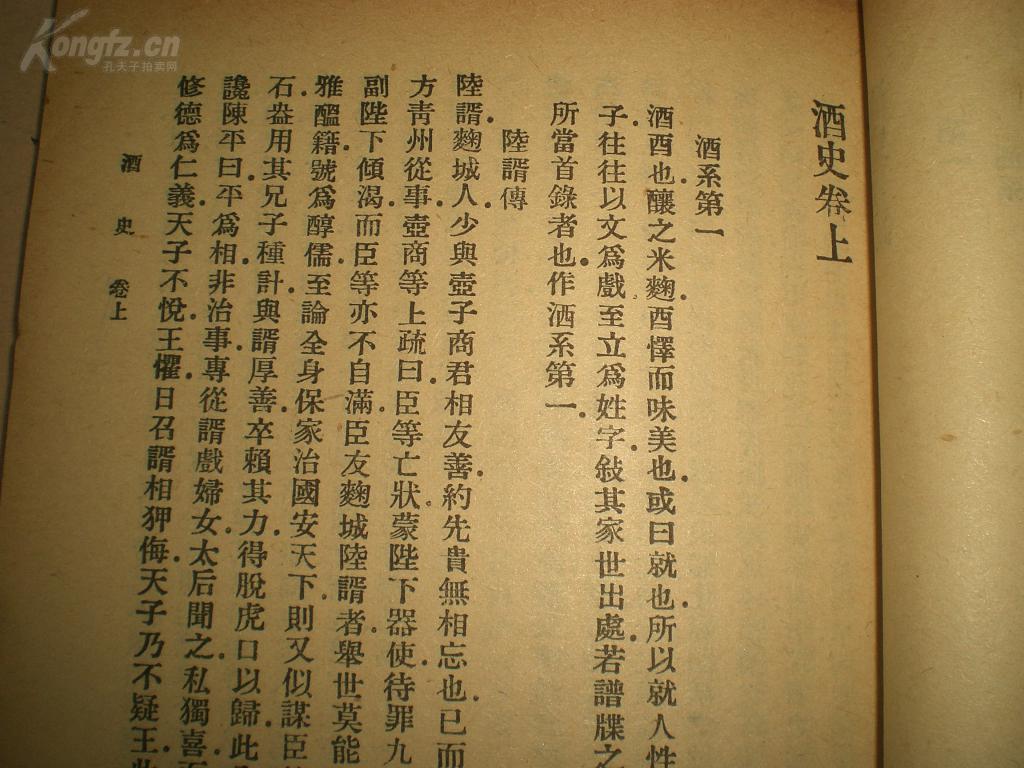 酒史卷上
酒系第一
酒酉也.釀之米麴.酉懌而味美也.或曰就也.所以就人性
子.往往以文爲戲至立爲姓字.敍其家世出處.若譜牒之
所當首錄者也.作酒系第一.
陸諝傳
陸諝.麴城人.少與壺子商君相友善.約先貴無相忘也.已而
方靑州從事.壺商等上疏曰.臣等亡狀蒙陛下器使.待罪九
副陛下傾渴.而臣等亦不自滿.臣友麴城陸諝者.舉世莫能
雅醞籍.號爲醇儒.至論全身保家治國安天下.則又似謀臣
石㿽用其兄子種計.與諝厚善.卒賴其力.得脫虎口以歸.此
讒陳平曰.平爲相.非治事.專從諝戲婦女.太后聞之.私獨喜
修德爲仁義.天子不悅.王懼.日召諝相狎侮.天子乃不疑王.
酒史 卷上
Kongfz.cn
孔夫子拍卖网